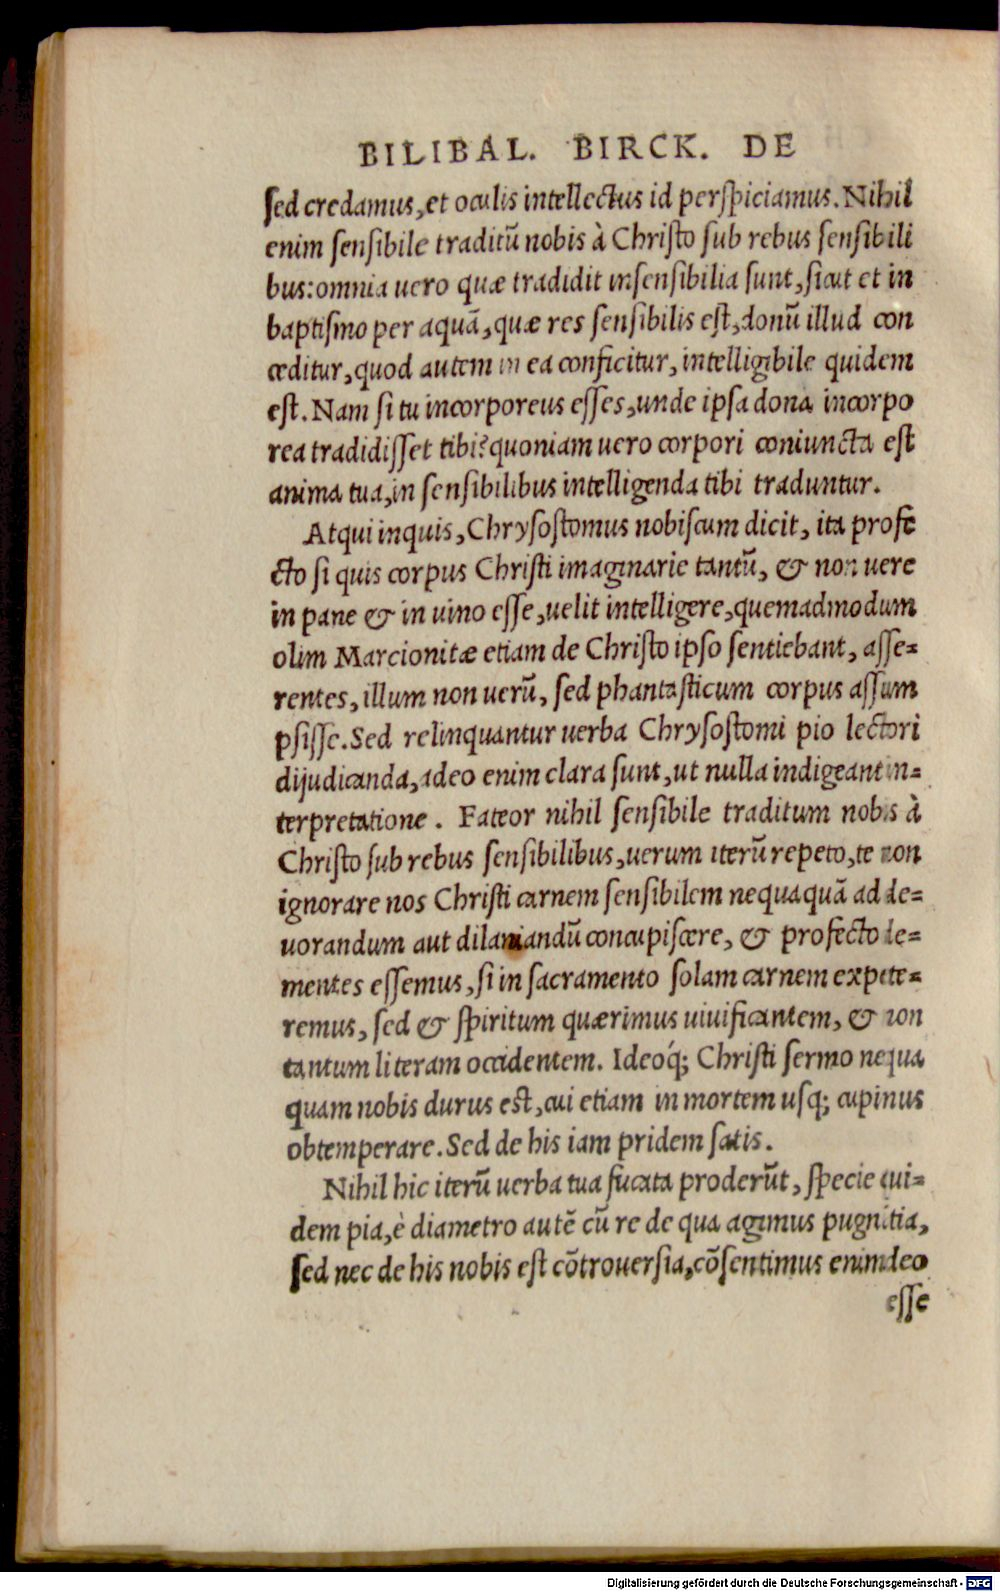 BILIBAL. BIRCK. DE
ſed credamus, et oculis intellectus id perſpiciamus. Nihil
enim ſenſibile traditũ nobis à Chriſto ſub rebus ſenſibili
bus: omnia uero quæ tradidit inſenſibilia ſunt, ſicut et in
baptiſmo per aquã, quæ res ſenſibilis eſt, donũ illud con
ceditur, quod autem in ea conficitur, intelligibile quidem
eſt. Nam ſi tu incorporeus eſſes, unde ipſa dona incorpo
rea tradidiſſet tibi? quoniam uero corpori coniuncta eſt
anima tua, in ſenſibilibus intelligenda tibi traduntur.
Atqui inquis, Chryſoſtomus nobiſcum dicit, ita profe
cto ſi quis corpus Chriſti imaginarie tantũ, & non uere
in pane & in uino eſſe, uelit intelligere, quemadmodum
olim Marcionitæ etiam de Chriſto ipſo ſentiebant, aſſe=
rentes, illum non uerũ, ſed phantaſticum corpus aſſum
pſiſſe. Sed relinquantur uerba Chryſoſtomi pio lectori
dijudicanda, adeo enim clara ſunt, ut nulla indigeant in=
terpretatione. Fateor nihil ſenſibile traditum nobis à
Chriſto ſub rebus ſenſibilibus, uerum iterũ repeto, te non
ignorare nos Chriſti carnem ſenſibilem nequaquã ad de=
uorandum aut dilaniandũ concupiſcere, & profecto de=
mentes eſſemus, ſi in ſacramento ſolam carnem expete=
remus, ſed & ſpiritum quærimus uiuificantem, & non
tantum literam occidentem. Ideoq́; Chriſti ſermo nequa
quam nobis durus eſt, cui etiam in mortem uſq; cupimus
obtemperare. Sed de his iam pridem ſatis.
Nihil hic iterũ uerba tua fucata proderũt, ſpecie qui=
dem pia, è diametro autẽ cũ re de qua agimus pugnãtia,
ſed nec de his nobis eſt cõtrouerſia, cõſentimus enim deo
eſſe
Digitalisierung gefördert durch die Deutsche Forschungsgemeinschaft - DFG